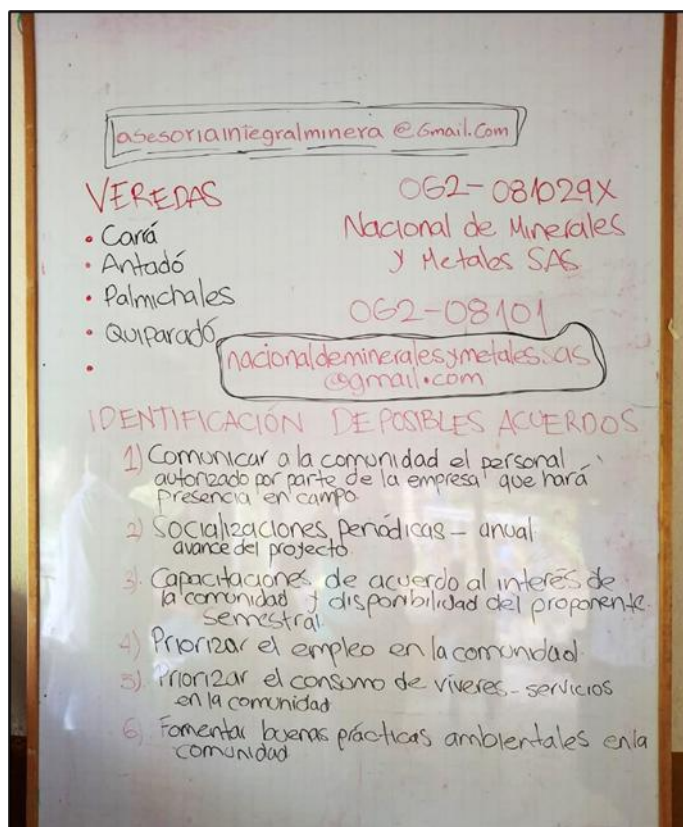 asesoriaintegralminera @Gmail.Com
VEREDAS
• Carrá
• Antadó
• Palmichales
• Quiparadó
•
OG2-081029X
Nacional de Minerales
y Metales SAS
OG2-08101
nacionaldemineralesymetales.sas
@gmail.com
IDENTIFICACIÓN DE POSIBLES ACUERDOS
1) Comunicar a la comunidad el personal
autorizado por parte de la empresa que hará
presencia en campo.
2) Socializaciones periódicas - anual
avance del proyecto
3) Capacitaciones de acuerdo al interés de
la comunidad y disponibilidad del proponente.
semestral
4) Priorizar el empleo en la comunidad
5) Priorizar el consumo de víveres - servicios
en la comunidad
6) Fomentar buenas prácticas ambientales en la
comunidad